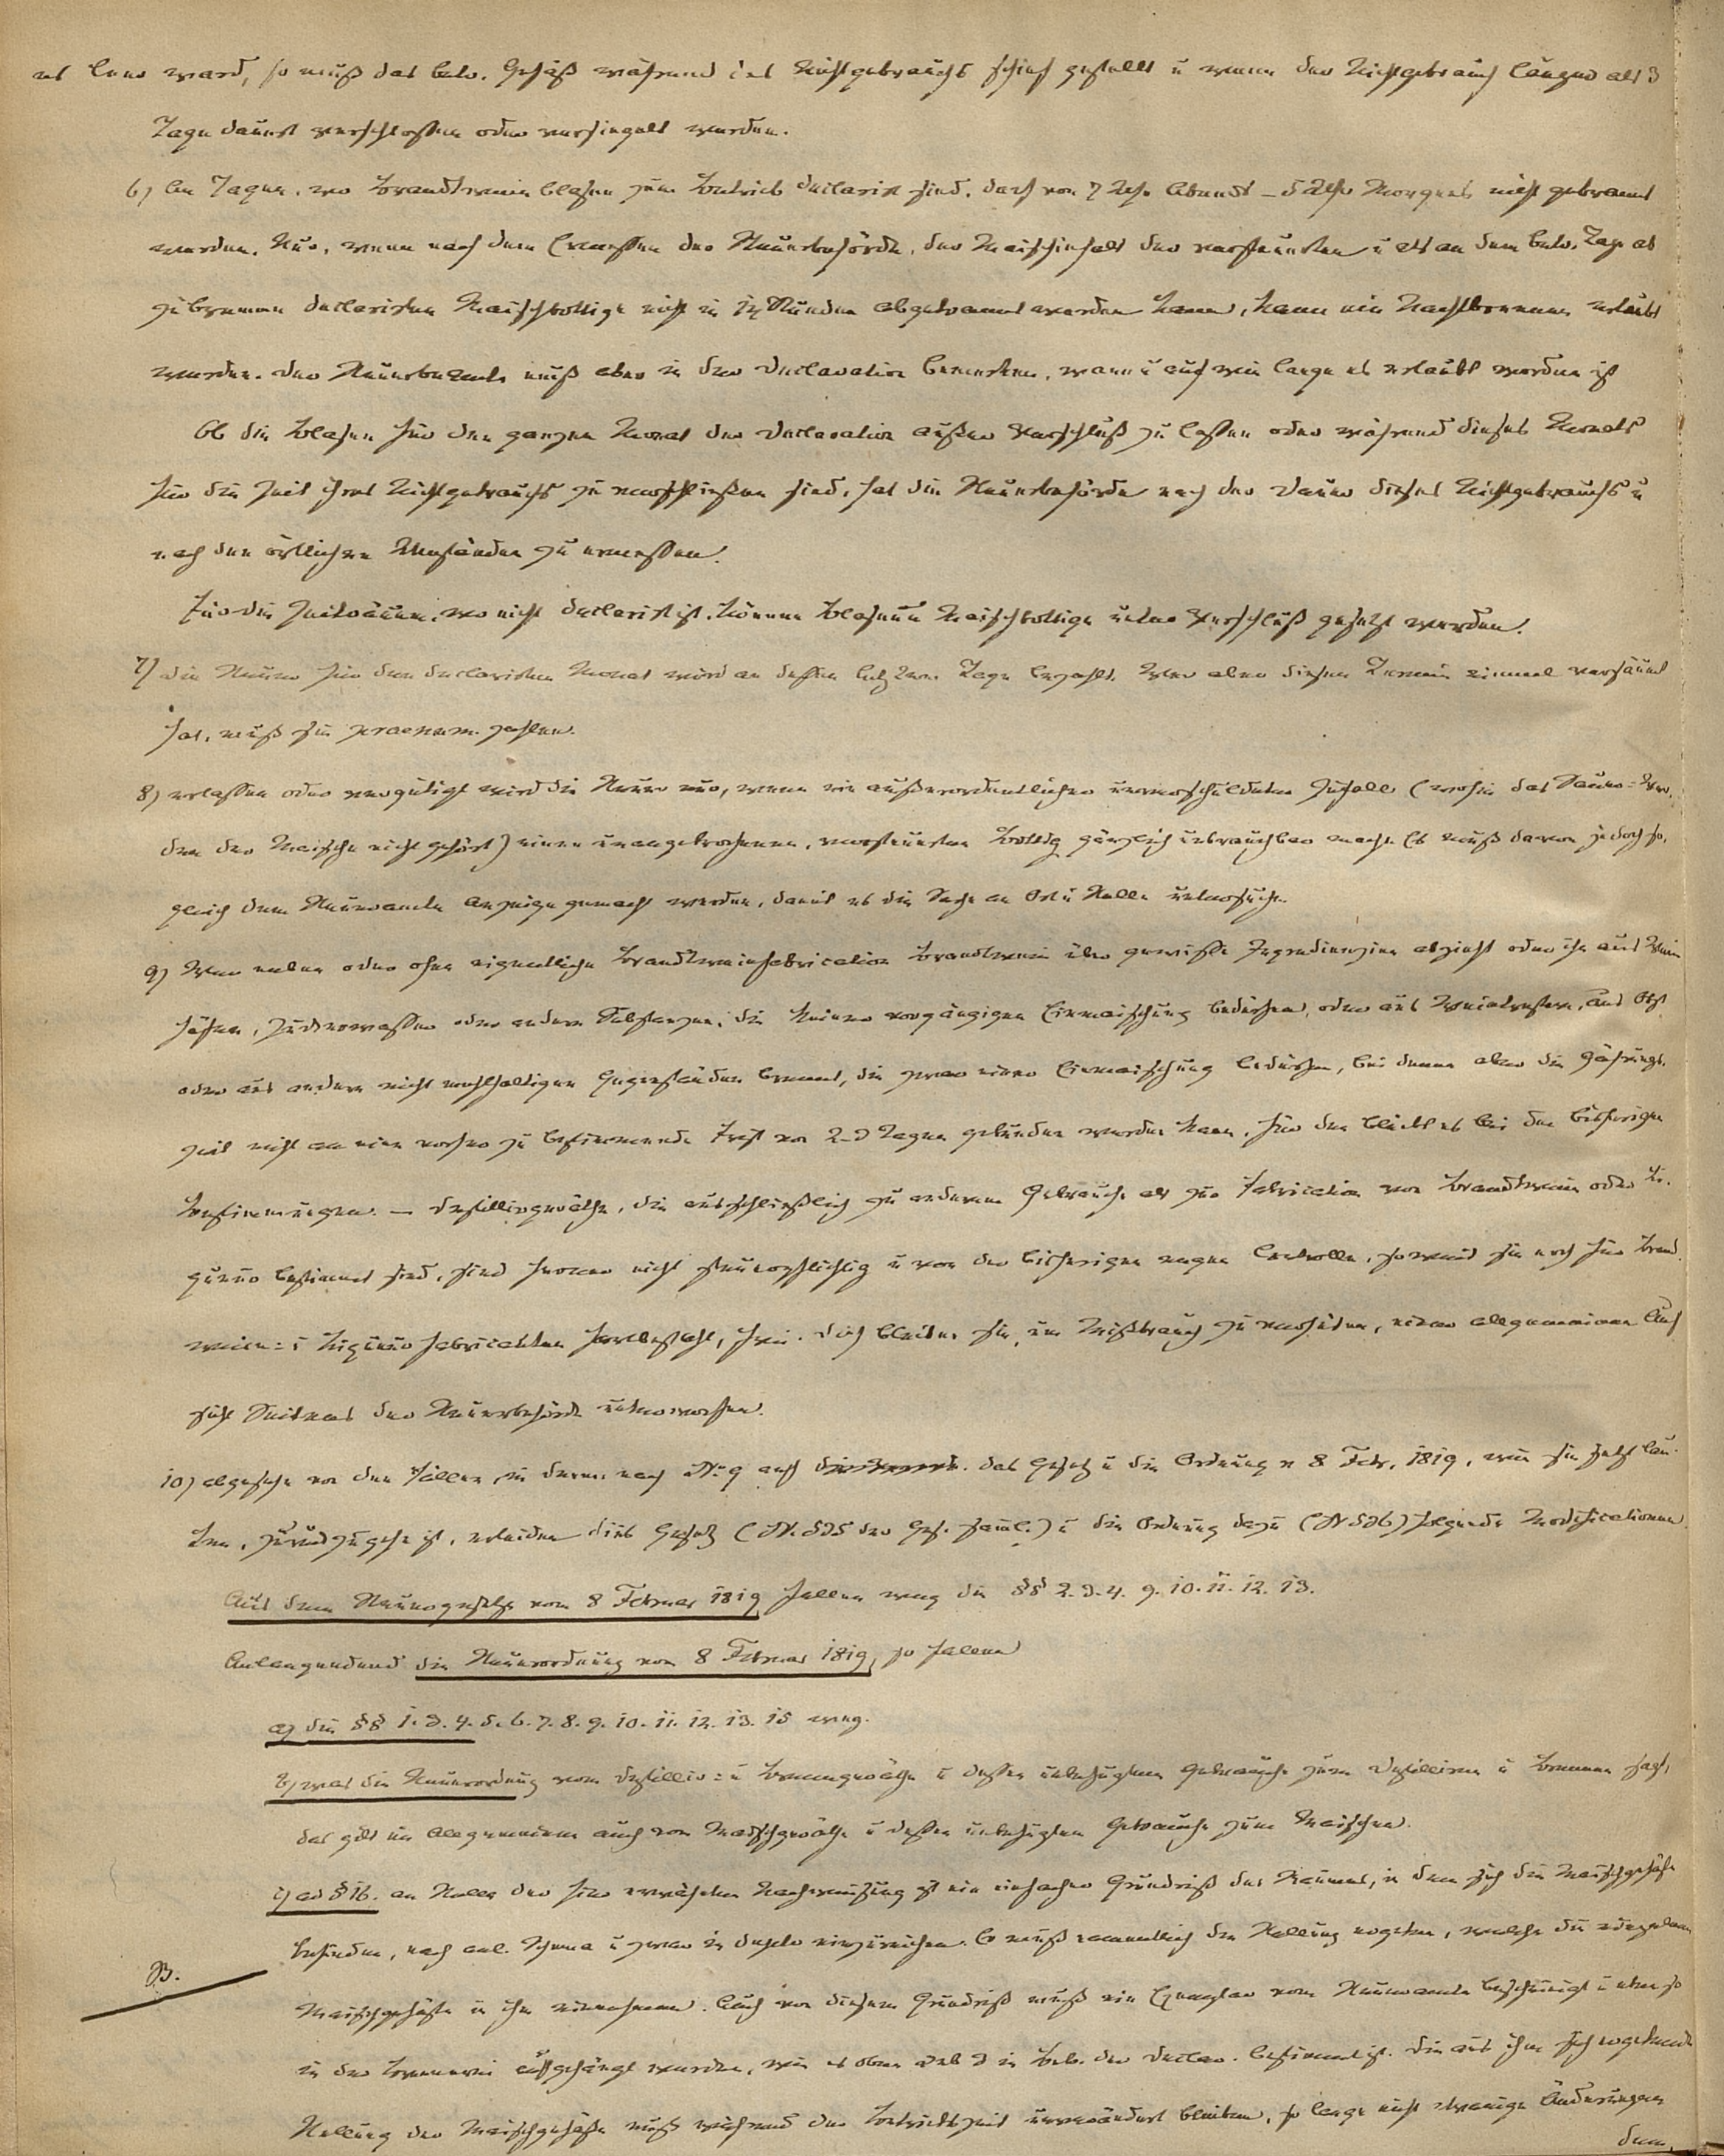 es leer ward, so muß das betr. Gefäß während des Nichtgebrauchs schief gestellt u wenn der Nichtgebrauch länger als 3
Tage dauert verschlossen oder versiegelt werden.
6) An Tagen, wo Brandtwein blasen zum Betrieb declarirt sind, darf von 7 Uhr Abends – 5 Uhr Morgens nicht gebrannt
werden. Nur, wenn nach dem Ermessen der Steuerbehörde, der Maischinhalt der versteuerten u als an dem betr. Tage ab
zubrennen declarirten Maischbottige nicht in 14 Stunden abgebrannt werden kann, kann ein Nachtbrennen erlaubt
werden. Der Steuerbeamte muß aber in der Declaration bemerken, wann u auf wie lange es erlaubt worden ist
Ob die Blasen für den ganzen Monat der Declaration außer Verschluß zu lassen oder während dieses Monats
für die Zeit ihres Nichtgebrauchs zu verschließen sind, hat die Steuerbehörde nach der Dauer dieses Nichtgebrauchs u
nach den örtlichen Umständen zu ermessen.
Für die Zeiträume, wo nicht declarirt ist, können Blasen u Maischbottige unter Verschluß gesetzt werden.
7) die Steuer für den declarirten Monat wird an dessen letztem Tage bezahlt. Wer aber diesen Termin einmal versäumt
hat, muß sie praenum. zahlen.
8) erlassen oder vergütigt wird die Steuer nur, wenn ein außerordentlicher unverschuldeter Zufall (wohin das Sauer-Wer-
den der Maische nicht gehört) einen unangebrochenen, versteuerten Bottig gänzlich unbrauchbar macht. Es muß davon jedoch so-
gleich dem Steueramte Anzeige gemacht werden, damit es die Sache an Ort u Stelle untersuche.
9) Wer neben oder ohne eigentliche Brandtweinfabrication Brandtwein über gewisse Ingredienzien abzieht oder ihn aus Wein
hefen, Zuckerwasser oder andern Substanzen, die keiner vorgängigen Einmaischung bedürfen, oder aus Weintrestern, aus Obst
oder aus andern nicht mehlhaltigen Gegenständen brennt, die zwar einer Einmaischung bedürfen, bei denen aber die Gährungs-
zeit nicht an eine vorher zu bestimmende Frist von 2-3 Tagen gebunden werden kann, für den bleibt es bei den bisherigen
Bestimmungen. – Destillirgeräthe, die ausschließlich zu anderem Gebrauche als zur Fabrication von Brandtwein oder Li-
queur bestimmt sind, sind ferner nicht steuerpflichtig u von der bisherigen engen Controlle, soweit sie noch für Brand-
wein- u Liqueur fabricanten fortbesteht, frei. Doch bleiben sie, um Mißbrauch zu verhüten, einer allgemeinen Auf
sicht Seitens der Steuerbehörde unterworfen.
10) abgesehn von den Fällen, in denen nach No 9 auf das Gesetz u die Ordnung v 8 Febr. 1819, wie sie jetzt lau-
ten, zurückzugehn ist, erleiden dies Gesetz (N. 525 der Ges. Saml.) u die Ordnung dazu (N 526) folgende Modificationen.
Aus dem Steuergesetze vom 8 Februar 1819 fallen weg die §§ 2. 3. 4. 9. 10. 11. 12. 13.
Anlangendend die Steuerordnung vom 8 Februar 1819, so fallen
a) die §§ 1. 3. 4. 5. 6. 7. 8. 9. 10. 11. 12. 13. 15 weg.
b) was die Steuerordnung vom Destillir- u Brenngeräthe u dessen unbefugtem Gebrauche zum Destilliren u Brennen sagt,
das gilt im Allgemeinen auch vom Maischgeräthe u dessen unbefugtem Gebrauche zum Maischen.
c) ad § 16. an Stelle der hier erwähnten Nachweisung ist ein einfacher Grundriß des Raumes, in dem sich die Maischgefäße
befinden, nach anl. Schema u zwar in duplo einzureichen. Er muß namentlich die Stellung ergeben, welche die einzelnen
B.
Maischgefäße in ihm einnehmen. Auch von diesem Grundriß muß ein Exemplar vom Steueramte bescheinigt u ebenso
in der Brennerei aufgehängt werden, wie es oben sub 3 in Betr. der Declar. bestimmt ist. Die aus ihm sich ergebende
Stellung der Maischgefäße muß während der Betriebszeit unverändert bleiben, so lange nicht etwanige Änderungen
dem